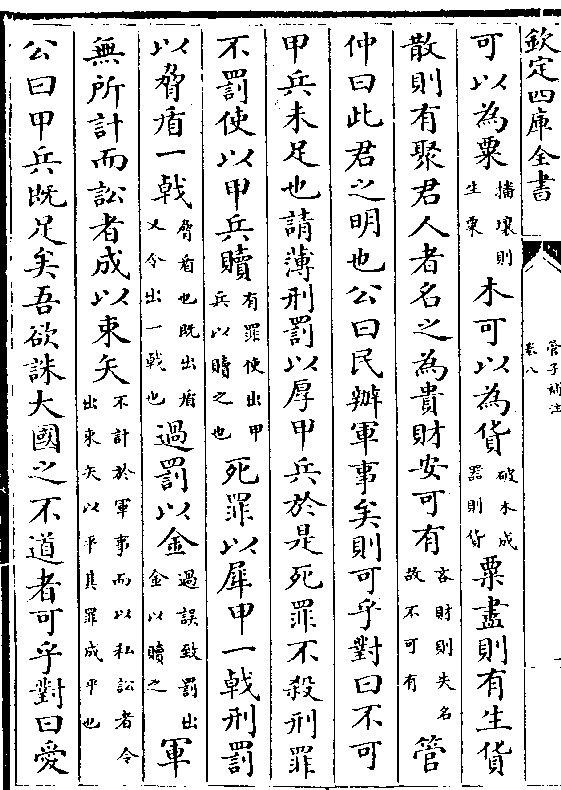 欽定四庫全書
管子補注
卷八
可以為粟墻壞則生粟木可以為貨破木成器則貨粟盡則有生貨
散則有聚君人者名之為貴財安可有吝財則失名故不可有管
仲曰此君之明也公曰民辦軍事矣則可乎對曰不可
甲兵未足也請薄刑罰以厚甲兵於是死罪不殺刑罪
不罰使以甲兵贖有罪使出甲兵以贖之也死罪以犀甲一戟刑罰
以脅盾一戟脅盾也既出盾又令出一戟也過罰以金過誤致罰出金以贖之軍
無所計而訟者成以束矢不計於軍事而以私訟者令出束矢以平其罪成平也
公曰甲兵既足矣吾欲誅大國之不道者可乎對曰愛